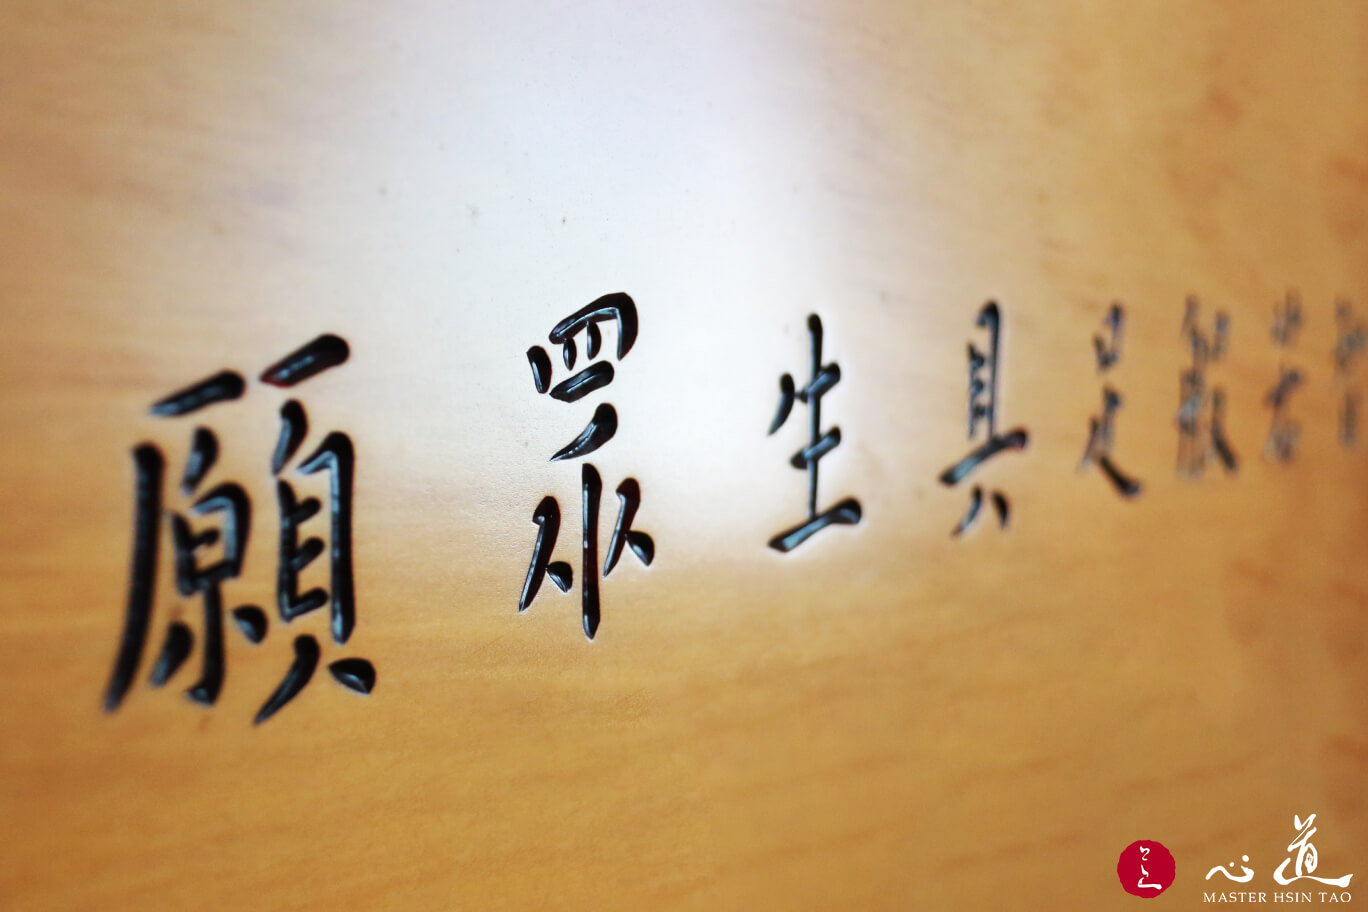 願眾生具足般若
心道
MASTER HSIN TAO